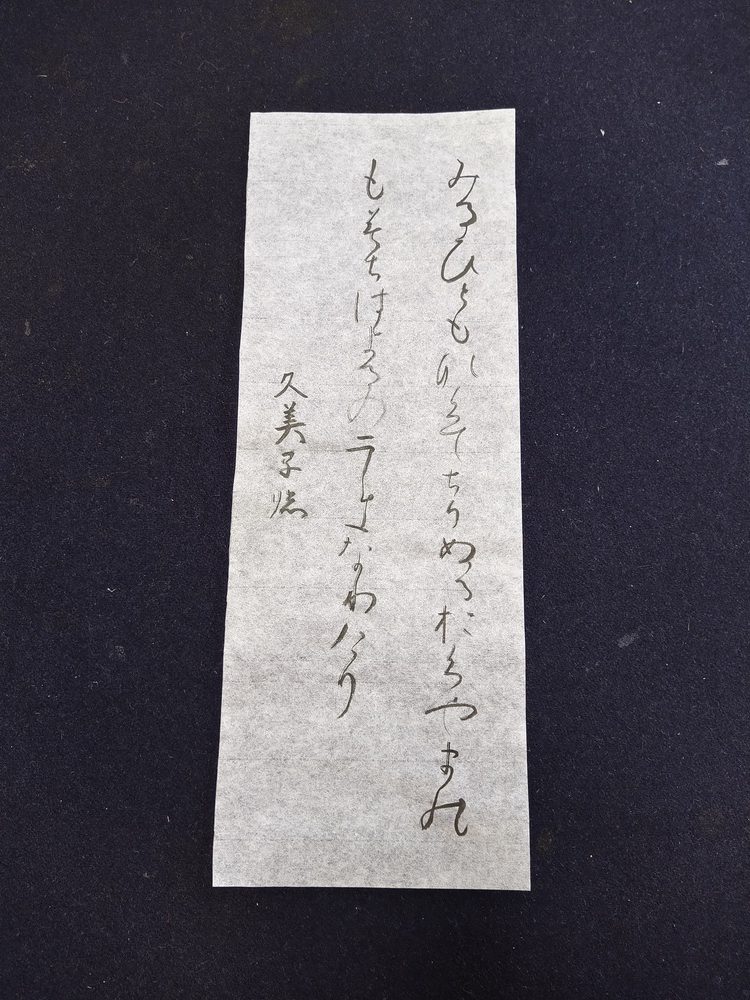 みるひともなくてちりぬるおくやまの
もみちはよるのにしきなりけり
久美子臨